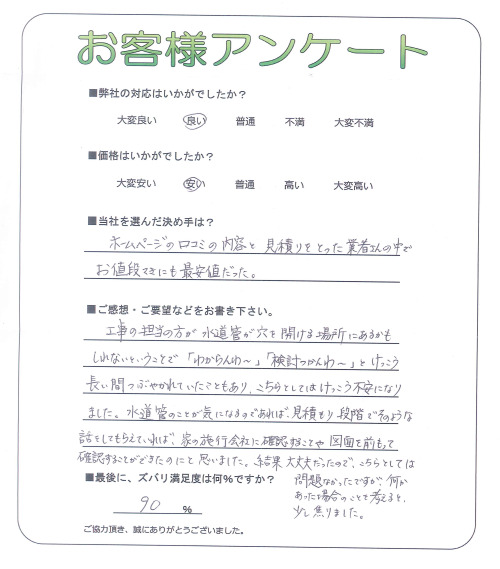 お客様アンケート
■弊社の対応はいかがでしたか？
大変良い 良い 普通 不満 大変不満
■価格はいかがでしたか？
大変安い 安い 普通 高い 大変高い
■当社を選んだ決め手は？
ホームページの口コミの内容と見積りをとった業者さんの中で
お値段的にも最安値だった。
■ご感想・ご要望などをお書き下さい。
工事の担当の方が水道管が穴を開ける場所にあるかも
しれないということで「わからんわ～」「検討つかんわ～」とけっこう
長い間つぶやかれていたこともあり、こちらとしてはけっこう不安になり
ました。水道管のことが気になるのであれば、見積もり段階でそのような
話をしてもらえていれば、家の施行会社に確認することや図面を前もって
確認することができたのにと思いました。結果大丈夫だったので、こちらとしては
問題なかったですが、何か
あった場合のことを考えると、
少し焦りました。
■最後に、ズバリ満足度は何％ですか？
90 ％
ご協力頂き、誠にありがとうございました。